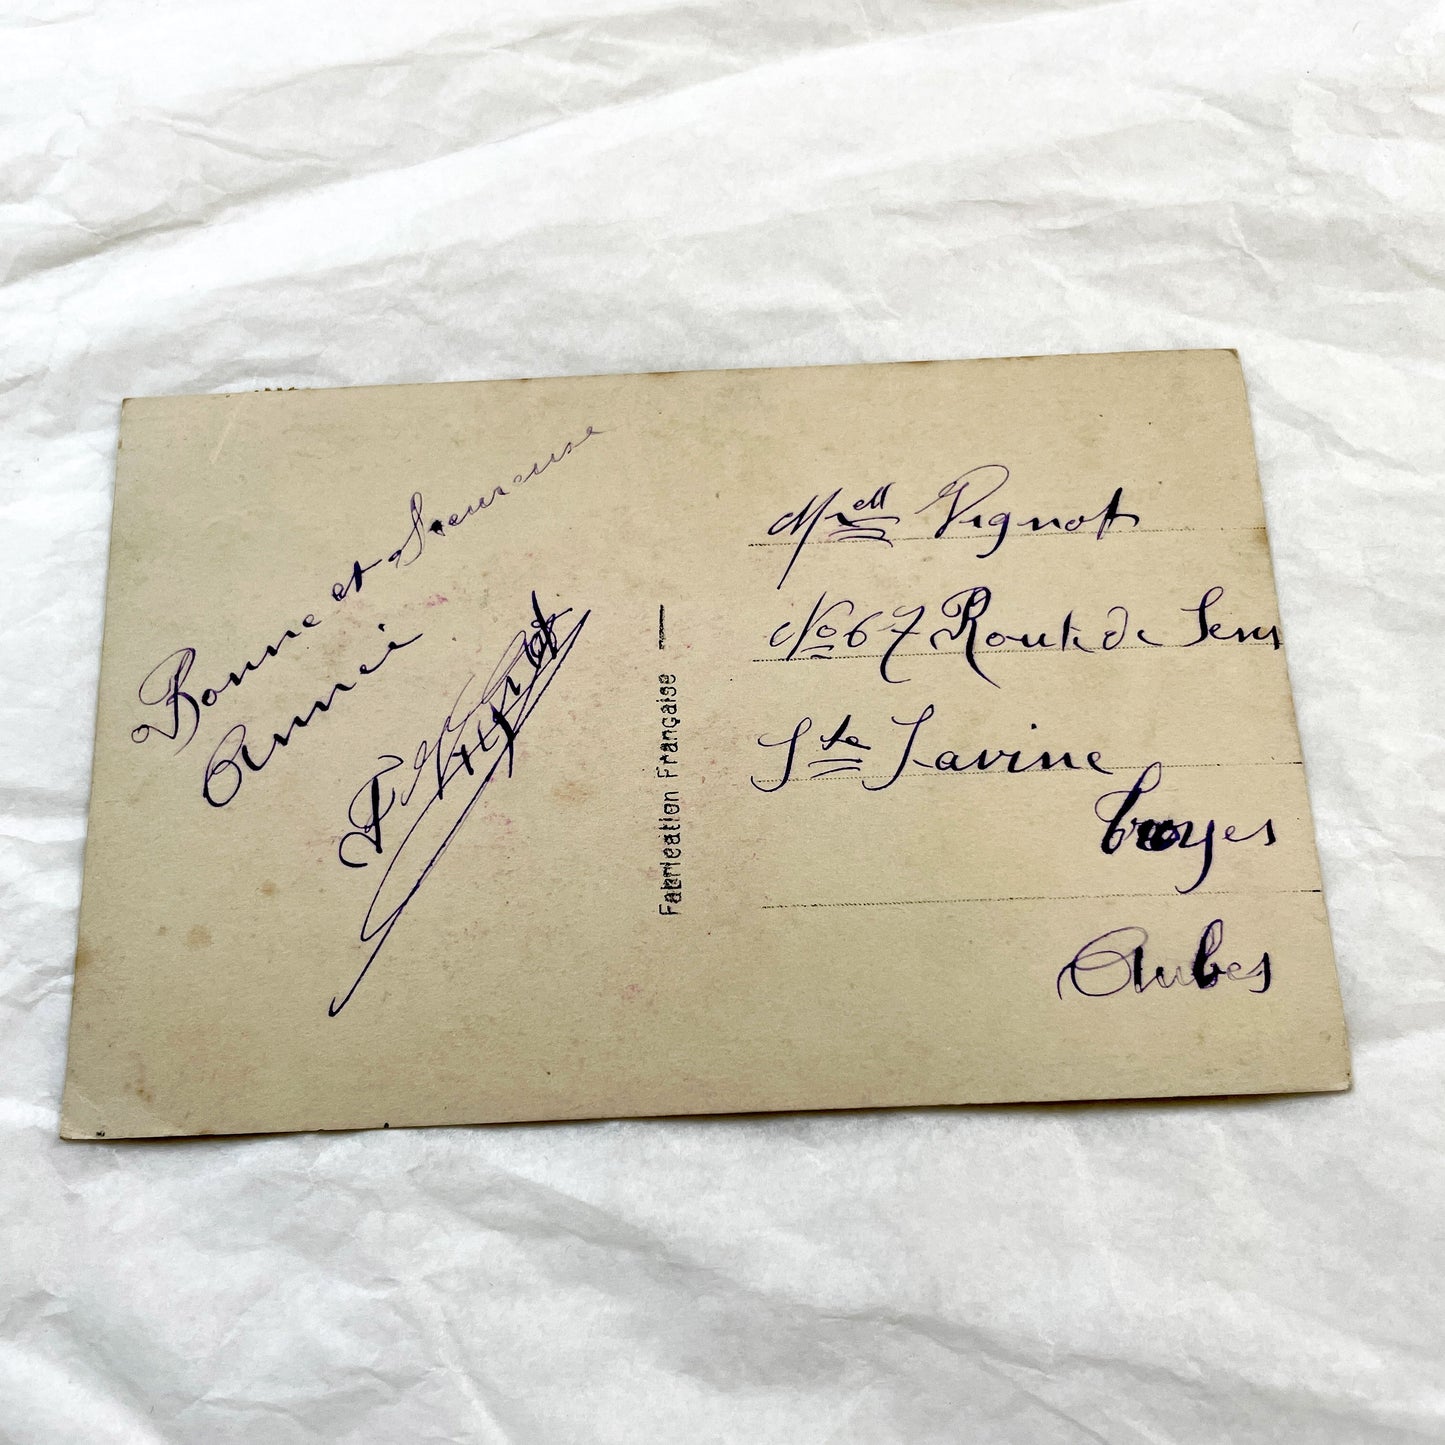 Bonne et Heureuse
Année
Fabrication Française
Mrell Vignot
No 67 Route de Sens
Ste Savine
Troyes
Aubes